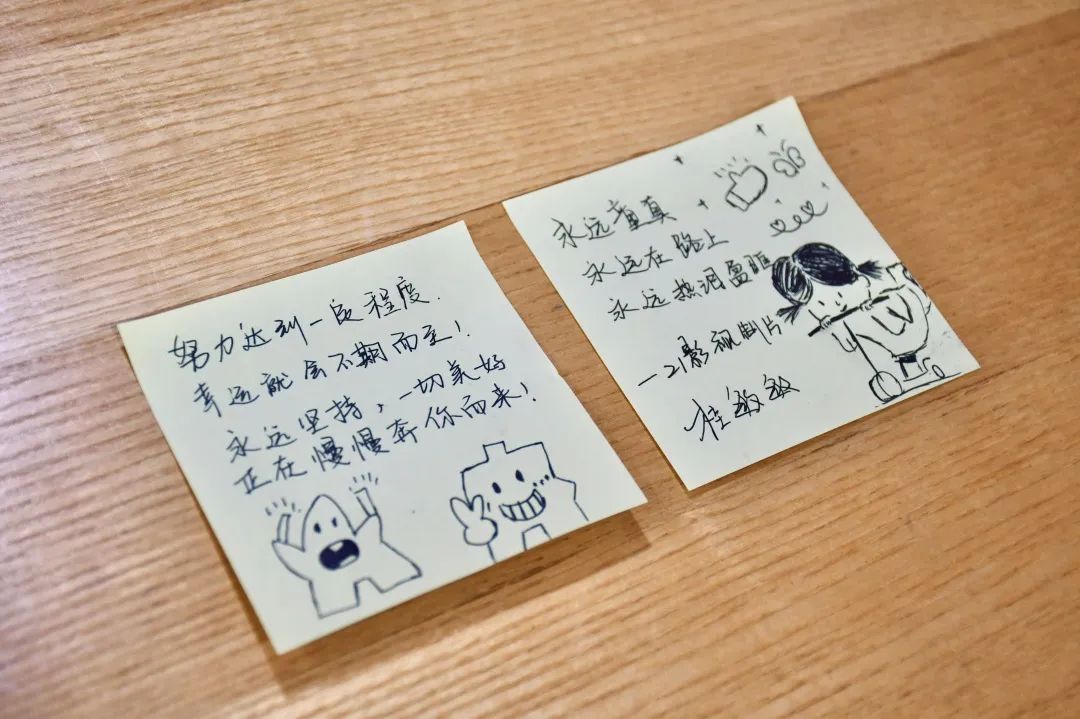 努力达到一定程度.
幸运就会不期而至!
永远坚持,一切美好
正在慢慢奔你而来!
永远童真
永远在路上
永远热泪盈眶
—21影视制片
桂敏敏